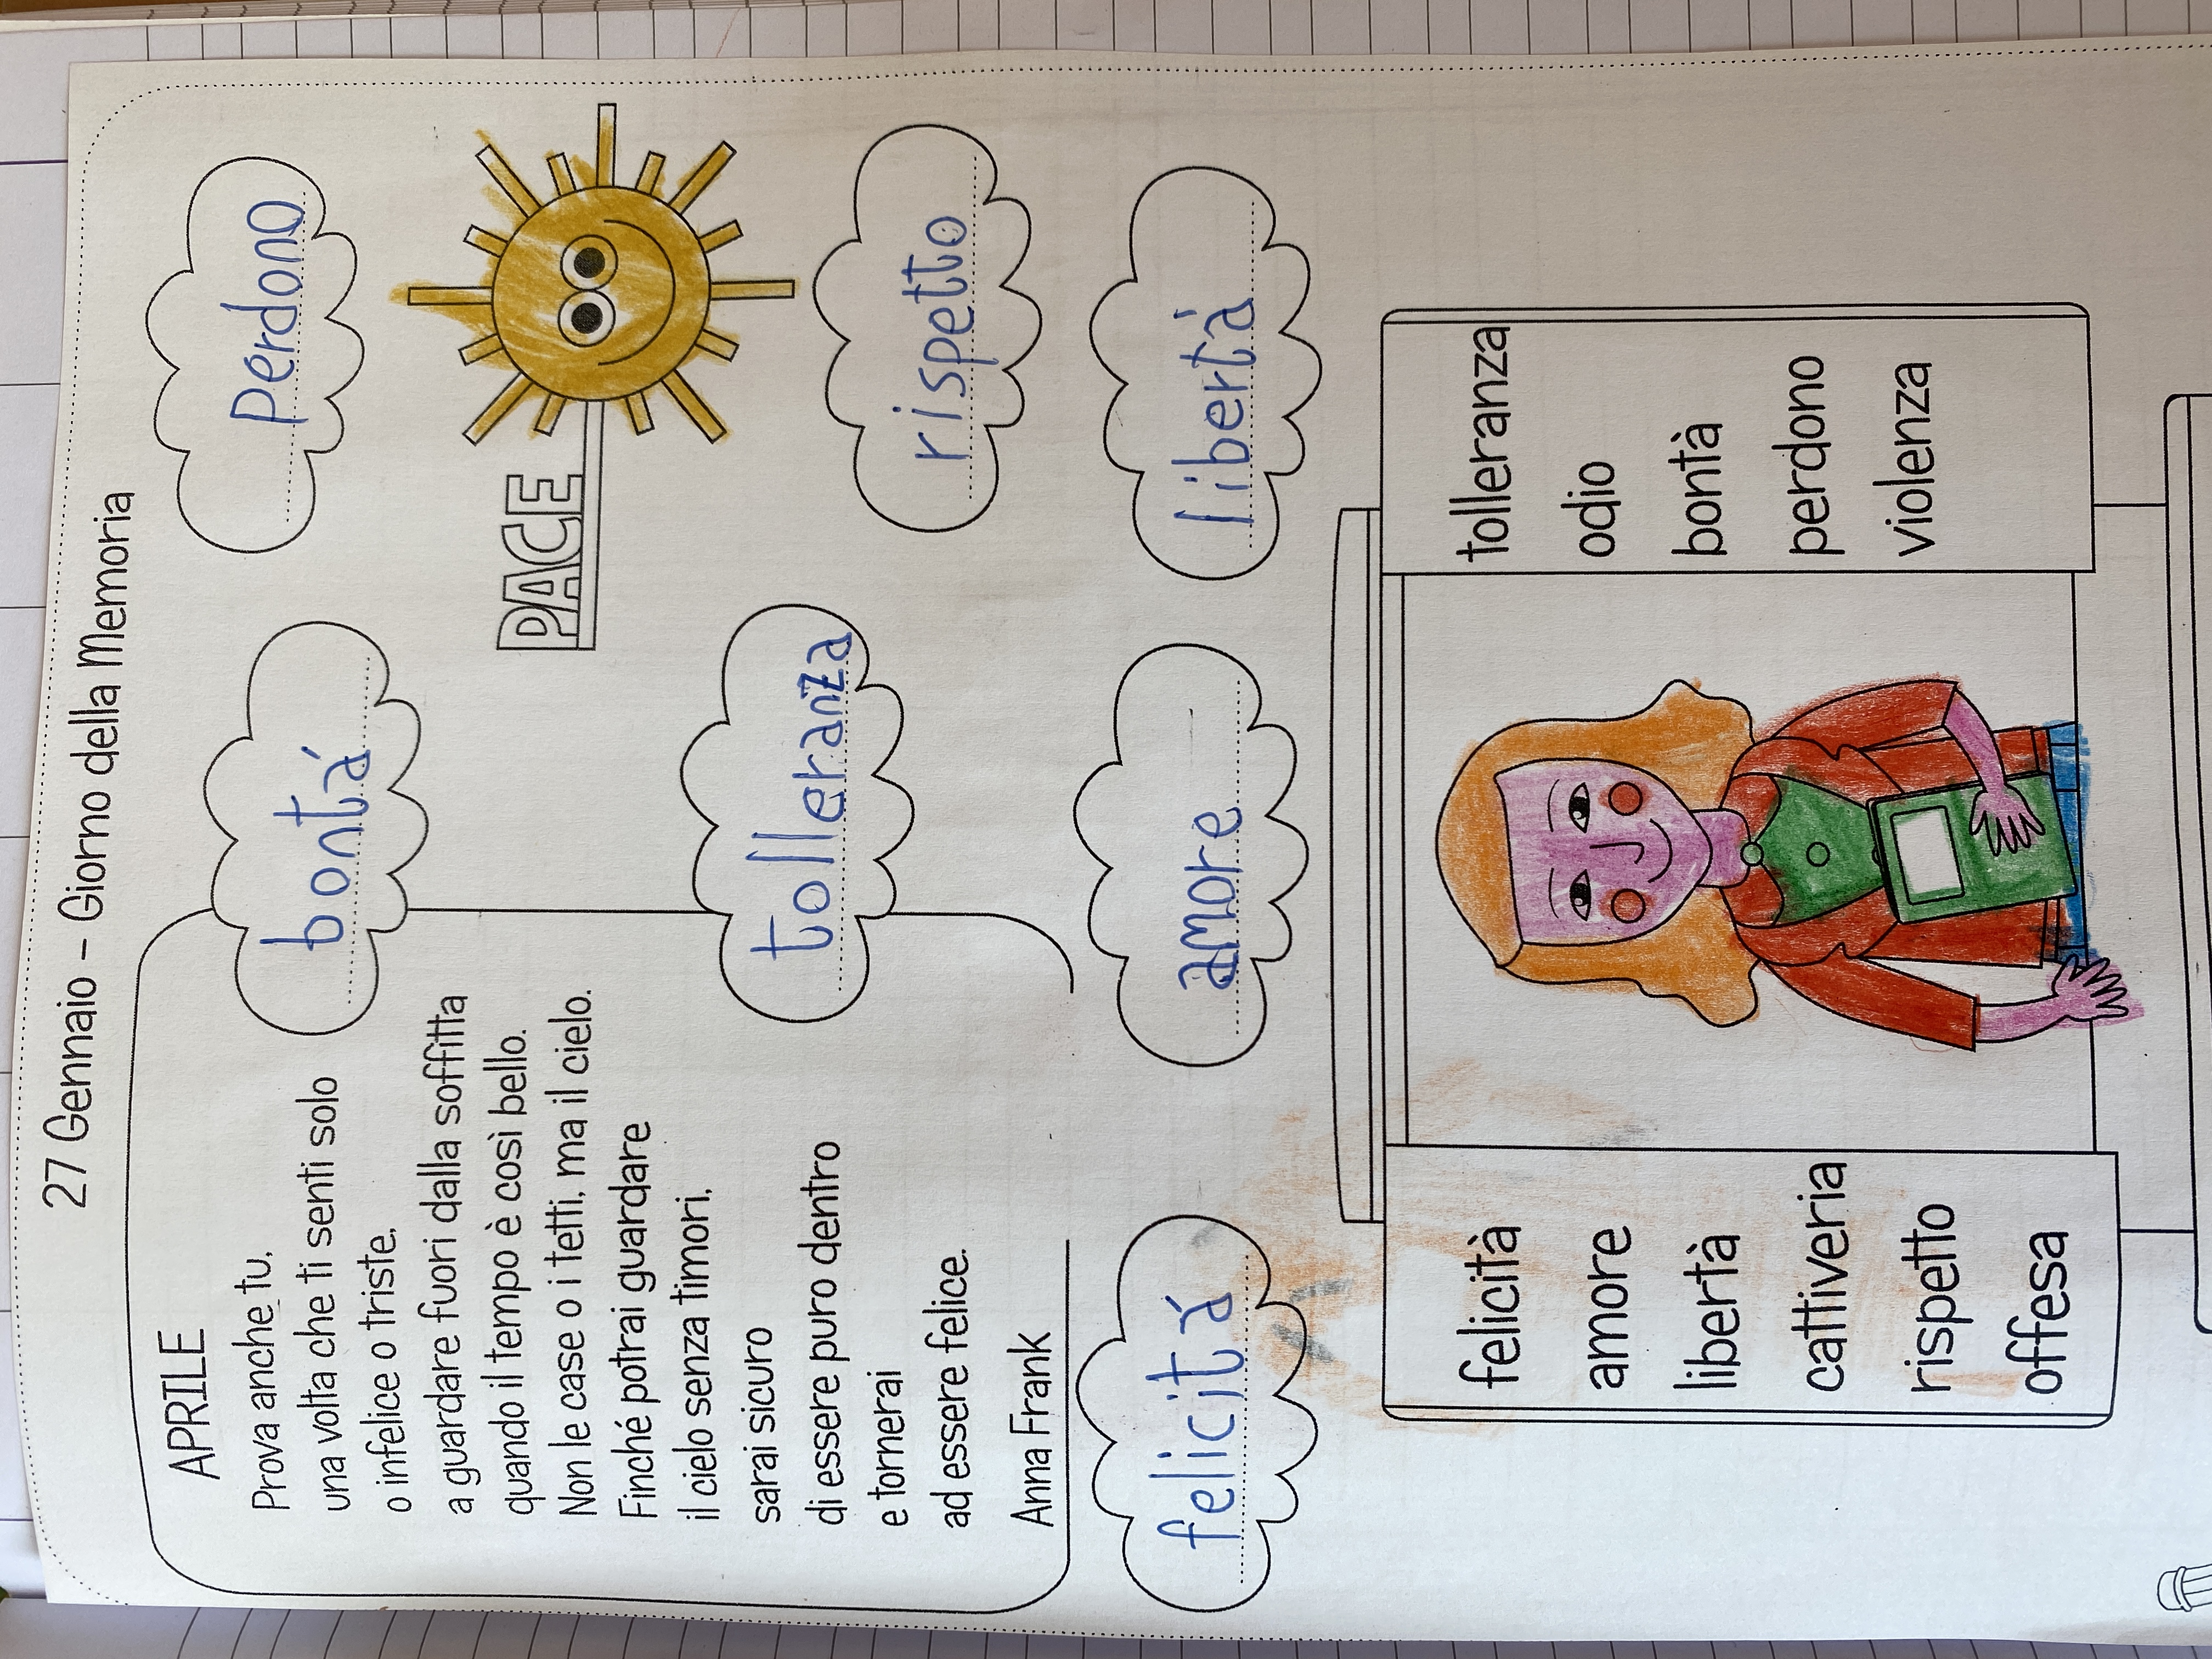 27 Gennaio - Giorno della Memoria
APRILE
Prova anche tu,
una volta che ti senti solo
o infelice o triste,
a guardare fuori dalla soffitta
quando il tempo è così bello.
Non le case o i tetti, ma il cielo.
Finché potrai guardare
il cielo senza timori,
sarai sicuro
di essere puro dentro
e tornerai
ad essere felice.
Anna Frank
bontá
perdono
PACE
tolleranza
rispetto
felicitá
amore
libertà
felicità
amore
libertà
cattiveria
rispetto
offesa
tolleranza
odio
bontà
perdono
violenza